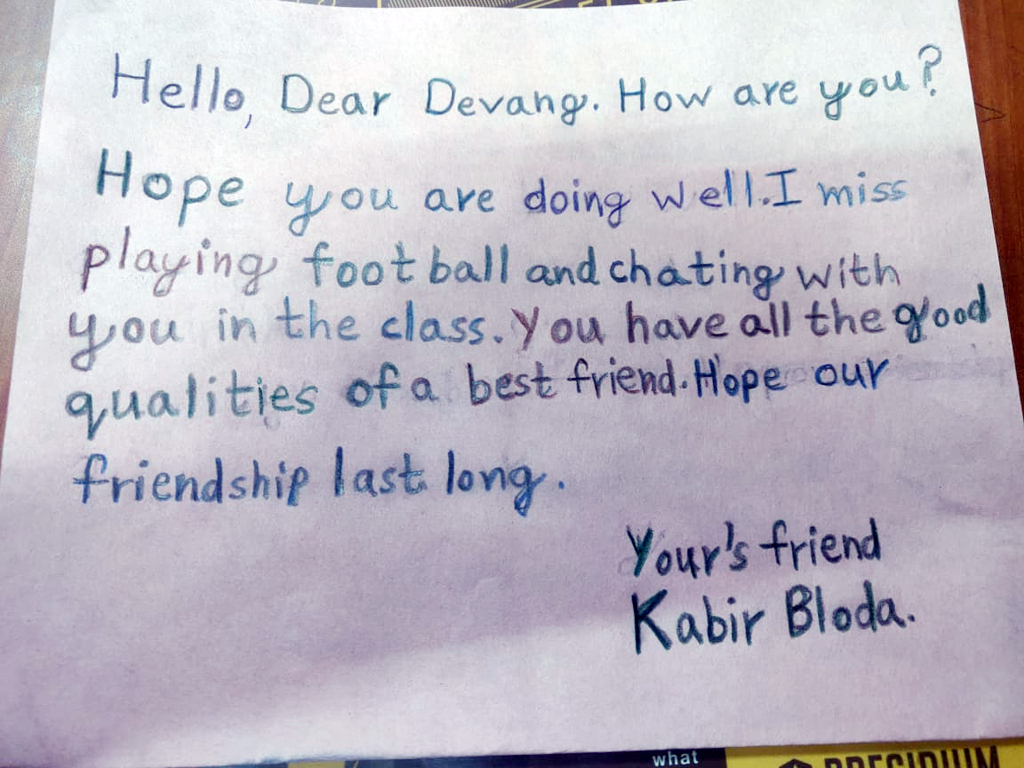 Hello, Dear Devang. How are you?
Hope you are doing well. I miss
playing foot ball and chating with
you in the class. You have all the good
qualities of a best friend. Hope our
friendship last long.
Your's friend
Kabir Bloda.
what